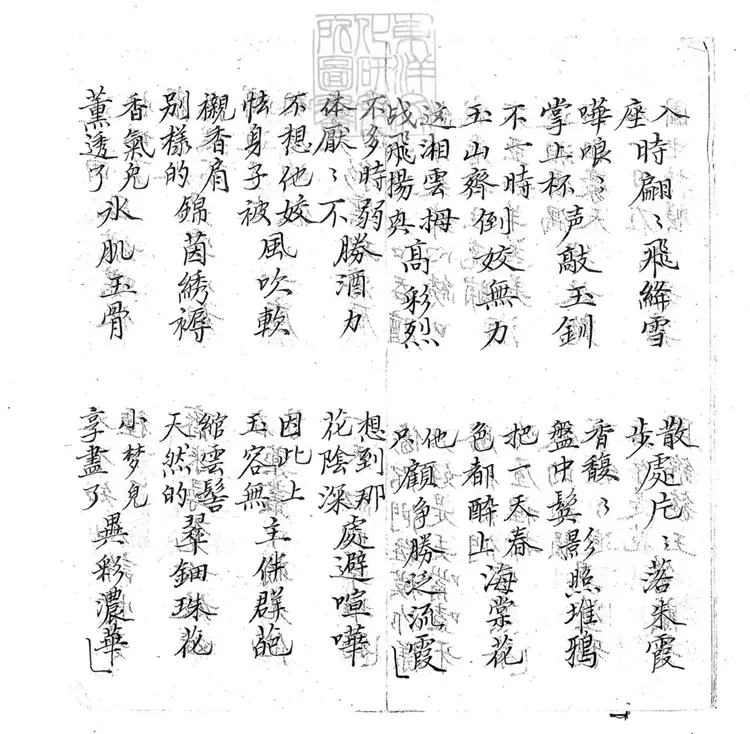 東洋
化研
所圖
入座時翩〻飛絳雪
散步處片〻落朱霞
嘩啷〻掌上杯声敲玉釧
香馥〻盤中鬓影照堆鴉
不一時玉山齊倒姣無力
把一天春色都醉上海棠花
这湘雲拇战飛揚興高彩烈
他只顧争勝泛流霞
不多時弱体厭〻不勝酒力
想到那花陰深處避喧嘩
不想他姣怯身子被風吹軟
因此上玉容無主伴群葩
襯香肩别樣的錦茵綉褥
綰雲髻天然的翠鈿珠花
香氣兒薰透了氷肌玉骨
小梦兒享盡了異彩濃華